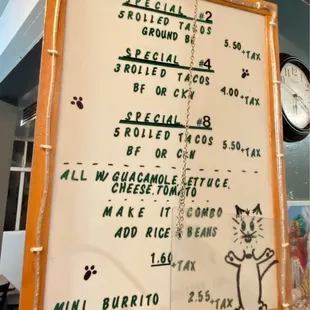 SPECIAL #2
5 ROLLED TACOS
GROUND BF
5.50+TAX
SPECIAL #4
3 ROLLED TACOS
BF OR CKN
4.00+TAX
SPECIAL #8
5 ROLLED TACOS
BF OR CKN
5.50+TAX
ALL W/ GUACAMOLE, LETTUCE,
CHEESE, TOMATO
MAKE IT COMBO
ADD RICE & BEANS
1.60+TAX
MINI BURRITO 2.55+TAX